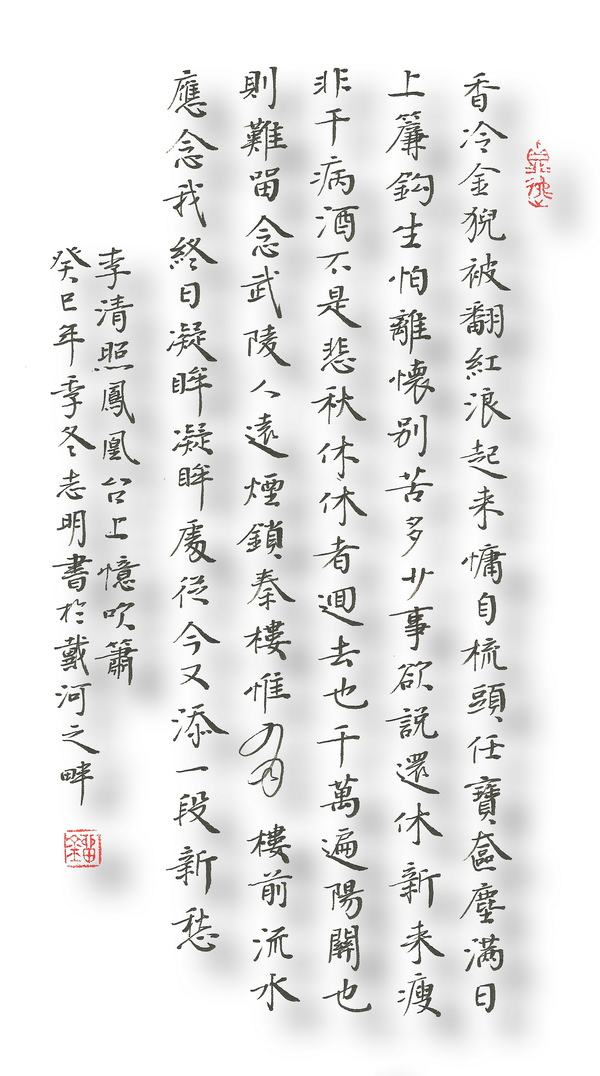 香冷金猊被翻紅浪起来慵自梳頭任寶奩塵滿日
上簾鈎生怕離懷別苦多少事欲說還休新来瘦
非干病酒不是悲秋休休者迴去也千萬遍陽關也
則難留念武陵人遠煙鎖秦樓惟有樓前流水
應念我終日凝眸凝眸處從今又添一段新愁
李清照鳳凰台上憶吹簫
癸巳年季冬志明書於戴河之畔